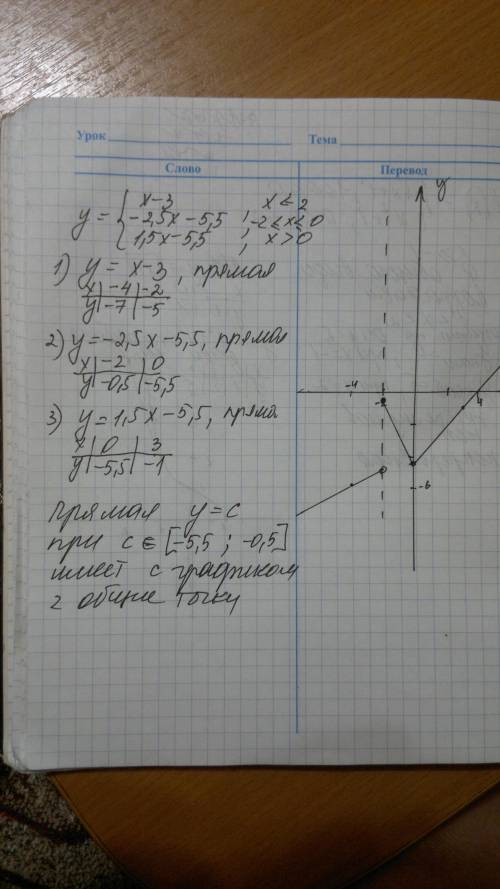 Урок Тема
Слово Перевод
y = { x-3 x ≤ 2
-2,5x-5,5 ; -2 ≤ x ≤ 0
1,5x-5,5 ; x > 0
1) y = x-3, прямая
x | -4 | -2
y | -7 | -5
2) y = -2,5x-5,5, прямая
x | -2 | 0
y | -0,5 | -5,5
3) y = 1,5x-5,5, пряма
x | 0 | 3
y | -5,5 | -1
Прямая y = c
при c ∈ [-5,5 ; -0,5]
имеет с графиком
2 общие точку
y
-4
4
-6